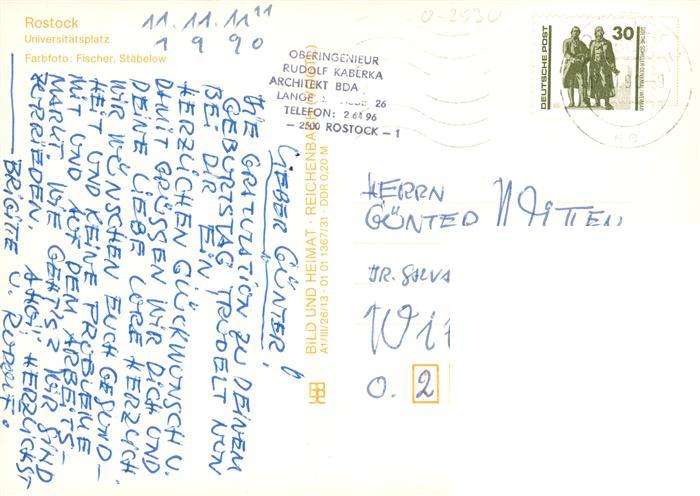 Rostock
Universitätsplatz
Farbfoto: Fischer, Stäbelow
11.11.11¹¹
1990
OBERINGENIEUR
RUDOLF KABERKA
ARCHITEKT BDA
LANGE 26
TELEFON: 2 64 96
— 2500 ROSTOCK — 1
DEUTSCHE POST
30
LIEBER GÜNTER!
DIE GRATULATION ZU DEINEM
GEBURTSTAG TRUDELT NUN
BEI DIR EIN.
HERZLICHEN GLÜCKWUNSCH U.
DAMIT GRÜSSEN WIR DICH UND
DEINE LIEBE LORE HERZLICH
WIR WÜNSCHEN EUCH GESUND-
HEIT UND KEINE PROBLEME
MIT UND AUF DEM ARBEITS-
MARKT. WIE GEHT'S? WIR SIND
ZUFRIEDEN. AHOI HERZLICHST
BRIGITTE U. RUDOLF.
BILD UND HEIMAT · REICHENBACH
A1/III/26/13 · 01 01 1367/31 · DDR 0,20 M
HERRN
GÜNTER
Wi
O. 2